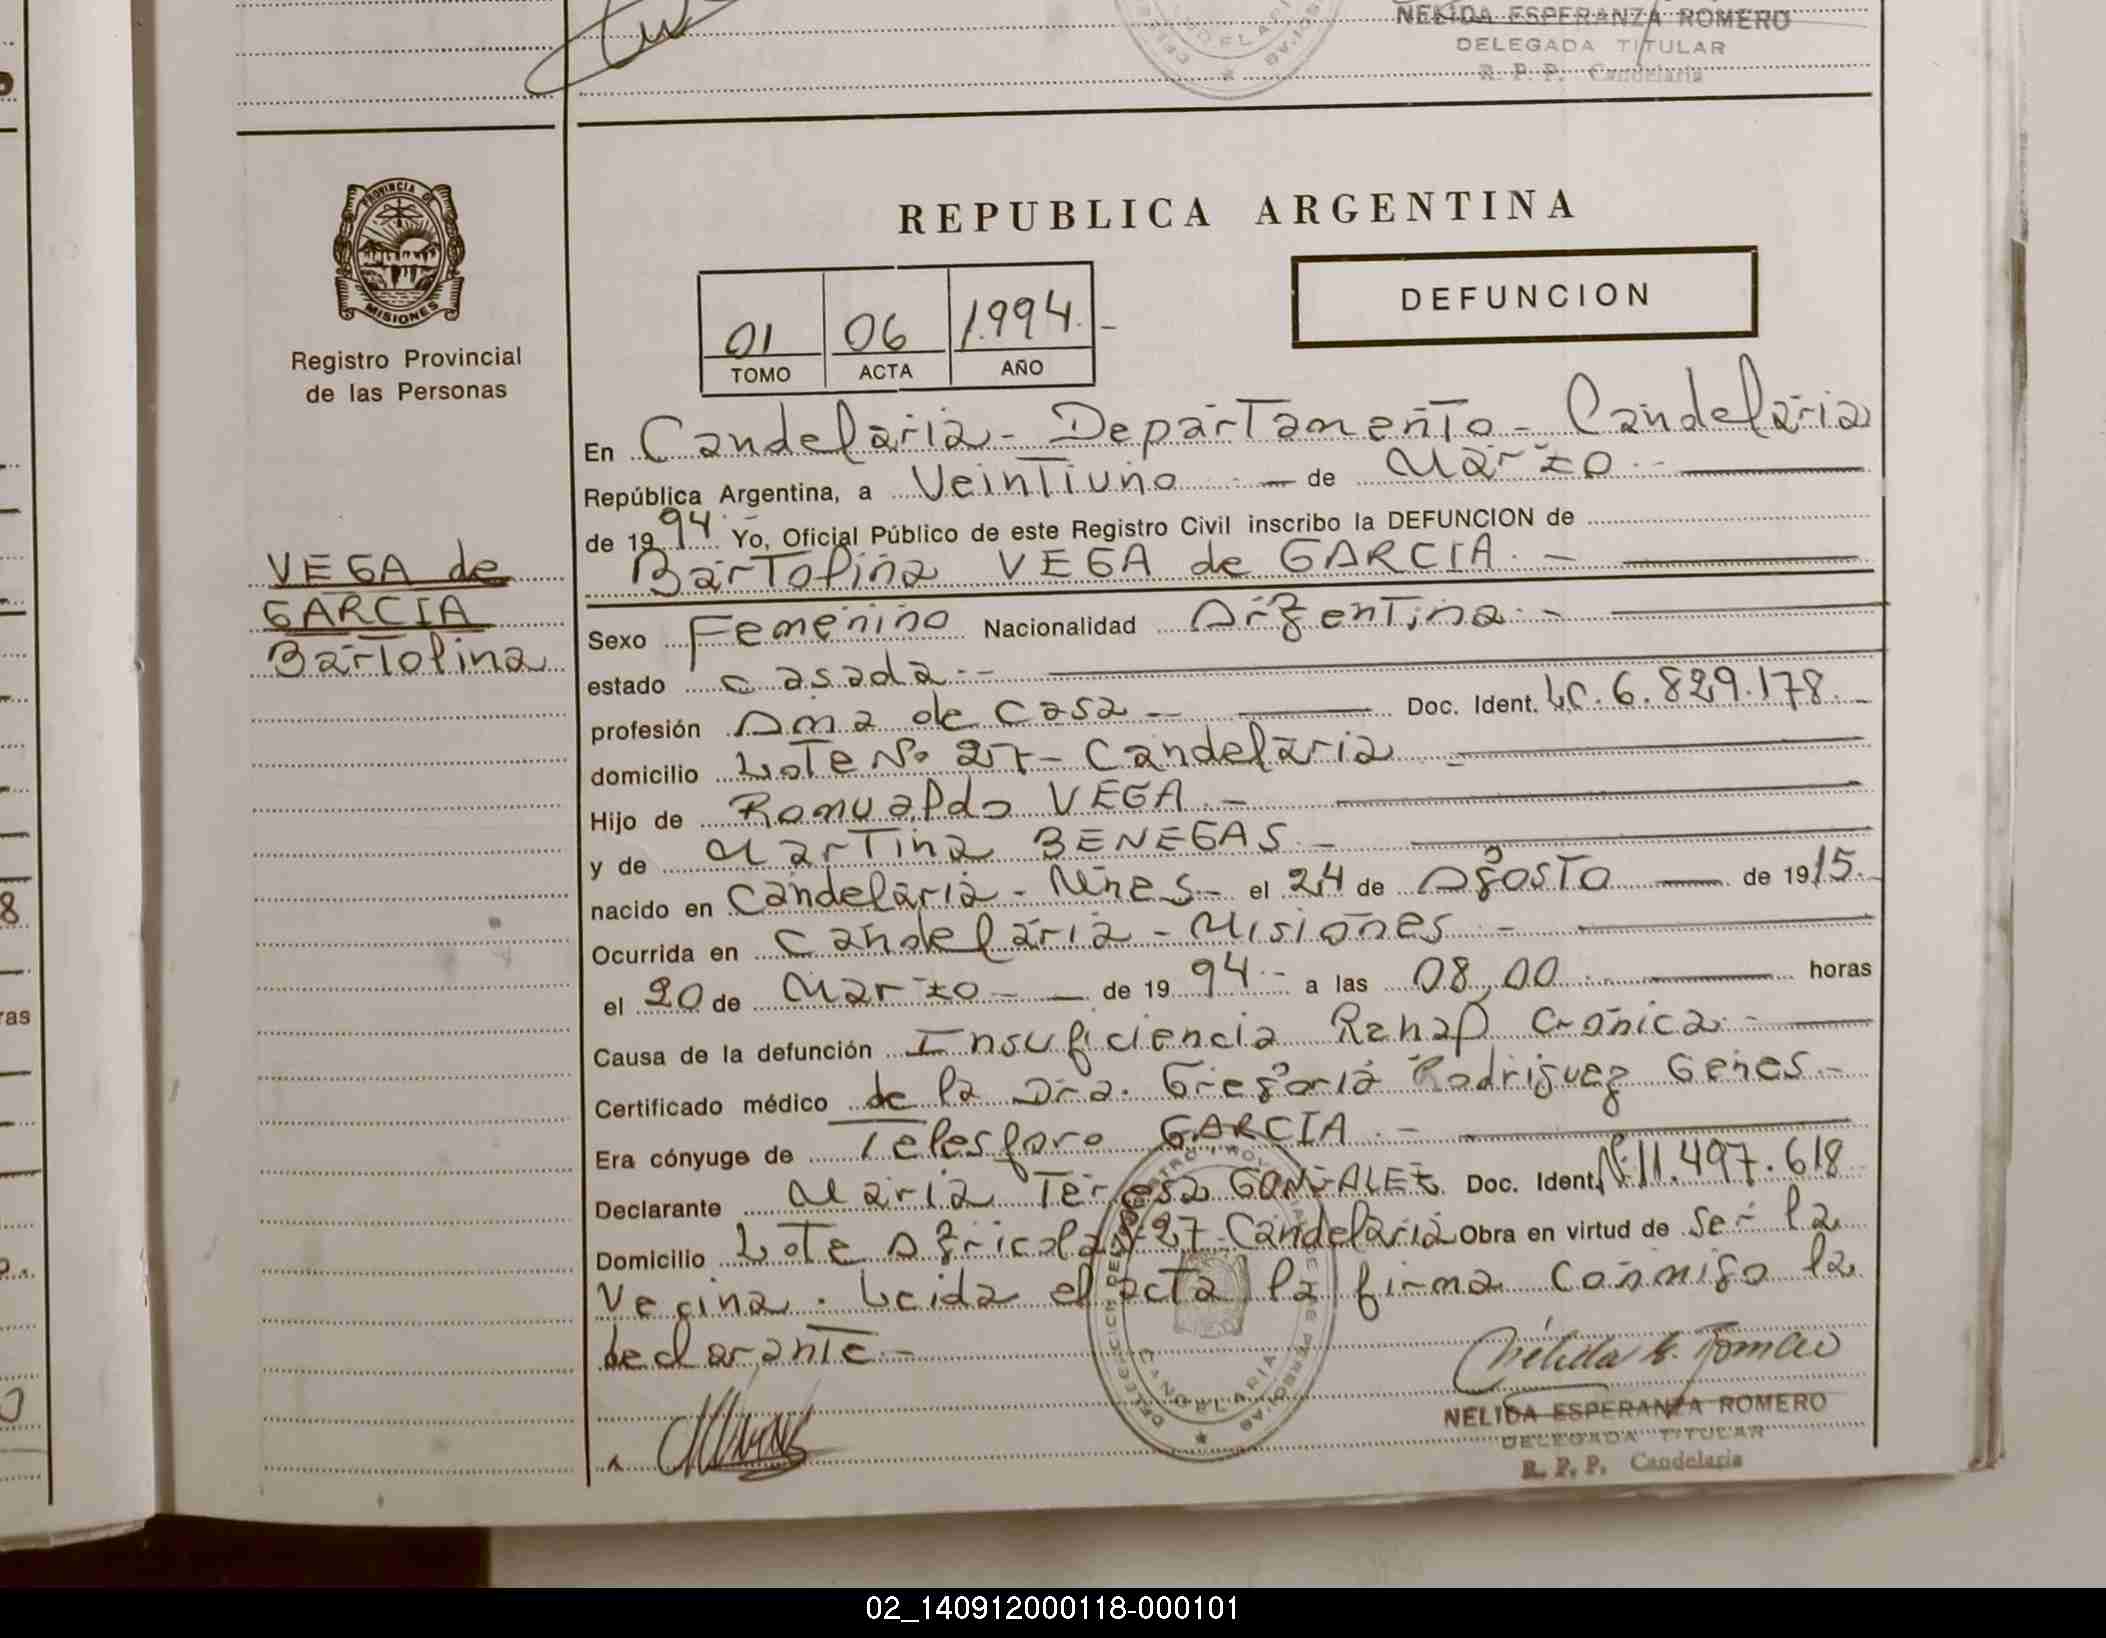 NELIDA ESPERANZA ROMERO
DELEGADA TITULAR
R. P. P. Candelaria
PROVINCIA DE
MISIONES
Registro Provincial
de las Personas
VEGA de
GARCIA
Bartolina
REPUBLICA ARGENTINA
DEFUNCION
01 06 1.994.-
TOMO ACTA AÑO
En Candelaria - Departamento - Candelaria
República Argentina, a Veintiuno - de Marzo -
de 1994 Yo, Oficial Público de este Registro Civil inscribo la DEFUNCION de
Bartolina VEGA de GARCIA. -
Sexo Femenino Nacionalidad Argentina. -
estado casada. -
profesión Ama de casa - Doc. Ident. LC. 6.829.178. -
domicilio Lote No 27 - Candelaria -
Hijo de Romualdo VEGA. -
y de Martina BENEGAS. -
nacido en Candelaria - Mnes - el 24 de Agosto - de 1915.
Ocurrida en Candelaria - Misiones - -
el 20 de Marzo - - de 1994. - a las 08,00 horas
Causa de la defunción Insuficiencia Renal Cronica. -
Certificado médico de la Dra. Gregoria Rodriguez Genes -
Era cónyuge de Telesforo GARCIA. -
Declarante Maria Teresa GONZALEZ Doc. Ident. 11.497.618
Domicilio Lote Agricola 27 - Candelaria Obra en virtud de Ser la
Vecina. Leida el acta la firma conmigo la
declarante -
DELEGACION DEL REGISTRO PROVINCIAL DE LAS PERSONAS
CANDELARIA
Nélida E. Romero
NELIDA ESPERANZA ROMERO
DELEGADA TITULAR
R. P. P. Candelaria
02_140912000118-000101